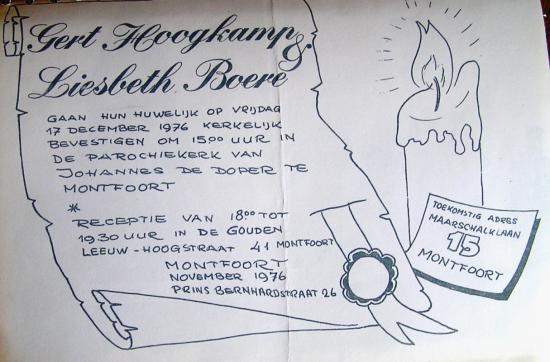 Gert Hoogkamp &
Liesbeth Boere
GAAN HUN HUWELIJK OP VRIJDAG
17 DECEMBER 1976 KERKELIJK
BEVESTIGEN OM 15.00 UUR IN
DE PAROCHIEKERK VAN
JOHANNES DE DOPER TE
MONTFOORT
*
RECEPTIE VAN 18.00 TOT
19.30 UUR IN DE GOUDEN
LEEUW - HOOGSTRAAT 41 MONTFOORT
MONTFOORT
NOVEMBER 1976
PRINS BERNHARDSTRAAT 26
TOEKOMSTIG ADRES
MAARSCHALKLAAN
15
MONTFOORT